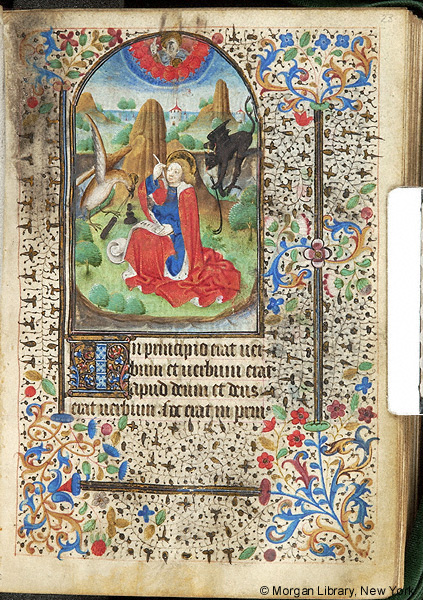 23
In principio erat uer
bum et uerbum erat
apud deum et deus
erat uerbum. hoc erat in prin
© Morgan Library, New York